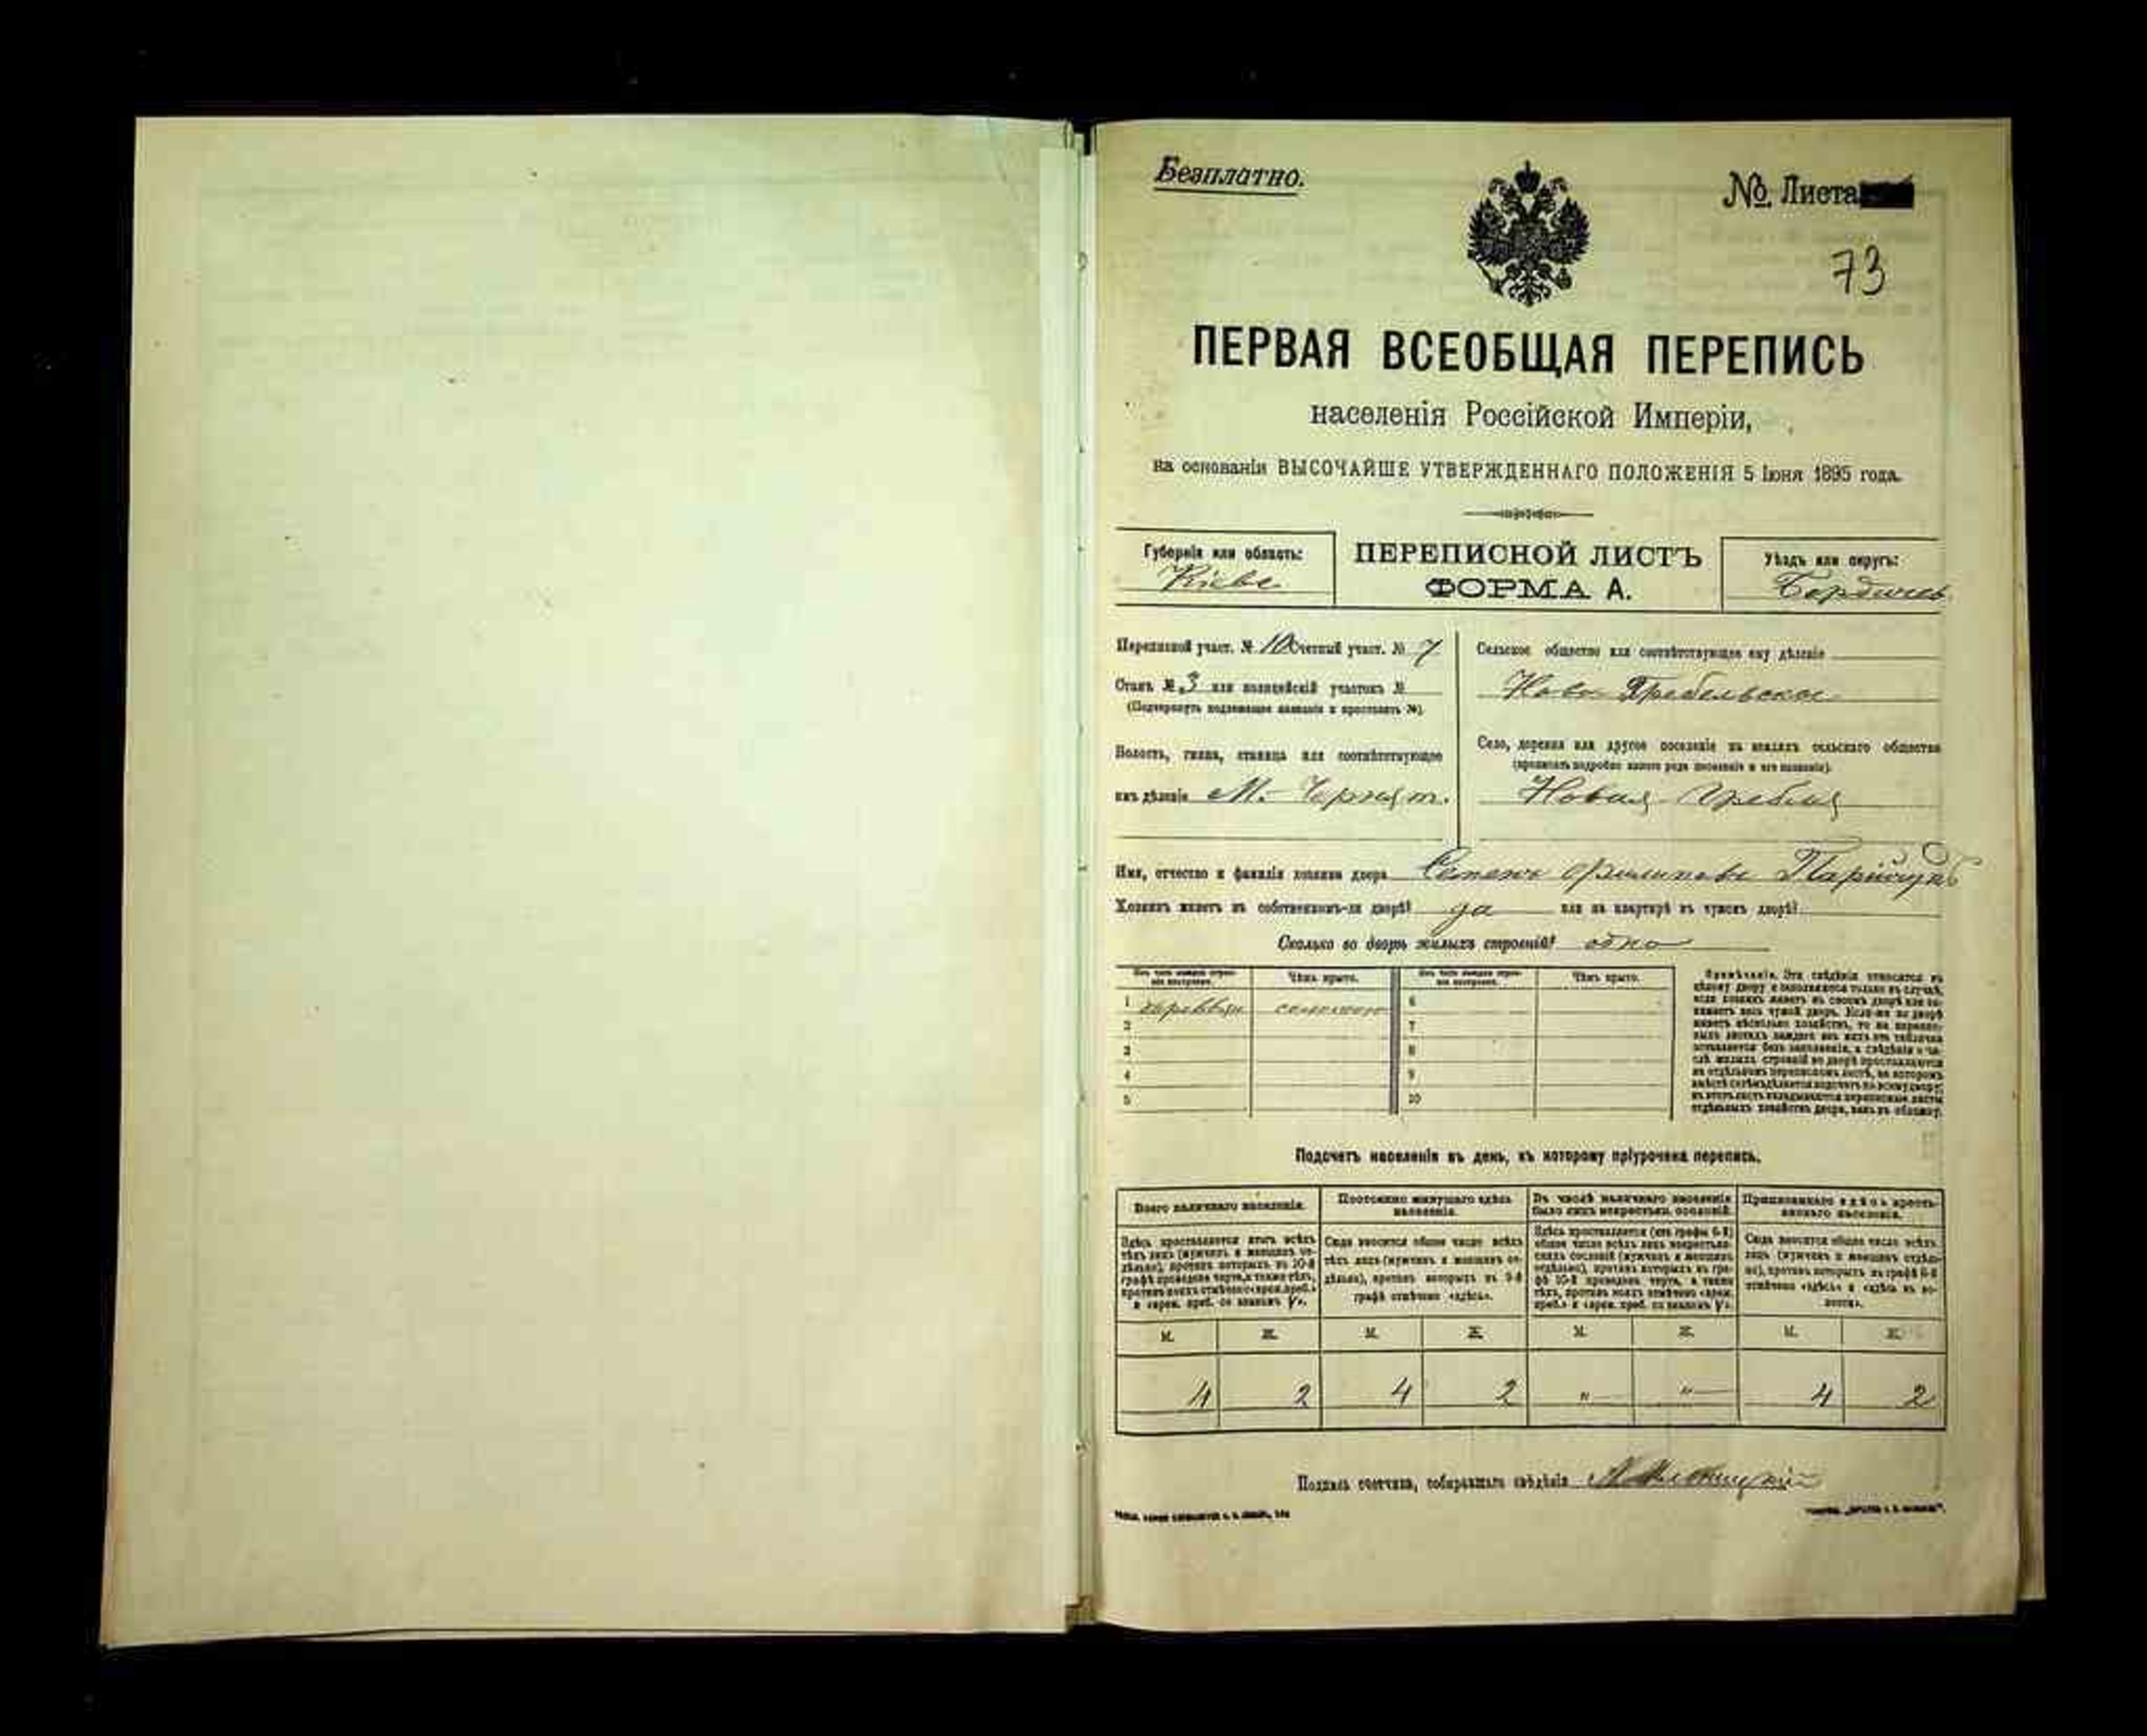 Безплатно.
№ Листа
73
ПЕРВАЯ ВСЕОБЩАЯ ПЕРЕПИСЬ
населенія Россійской Имперіи,
на основаніи ВЫСОЧАЙШЕ УТВЕРЖДЕННАГО ПОЛОЖЕНІЯ 5 Іюня 1895 года.
Губернія или область:
Кіевс
ПЕРЕПИСНОЙ ЛИСТЪ
ФОРМА А.
Уѣздъ или округъ:
Бердичев
Переписной участ. № 10 Счетный участ. № 7
Станъ № 3 или полицейскій участокъ №
(Подчеркнуть подлежащее названіе и проставить №).
Волость, гмина, станица или соотвѣтствующее
имъ дѣленіе М. Чернят.
Сельское общество или соотвѣтствующее ему дѣленіе
Ново Гребельское
Село, деревня или другое поселеніе на земляхъ сельскаго общества
(прописать подробно какого рода поселеніе и его названіе).
Новая Гребля
Имя, отчество и фамилія хозяина двора Семенъ Филиповъ
Хозяинъ живетъ въ собственномъ-ли дворѣ? да или на квартирѣ въ чужомъ дворѣ?
Сколько во дворѣ жилыхъ строеній? одно
Изъ чего каждое строеніе построено. Чѣмъ крыто. Изъ чего каждое строеніе построено. Чѣмъ крыто.
1 соломою 6
2 7
3 8
4 9
5 10
Примѣчаніе. Эти свѣдѣнія относятся къ
цѣлому двору и заполняются только въ случаѣ,
если хозяинъ живетъ въ своемъ дворѣ или за-
нимаетъ весь чужой дворъ. Если-же во дворѣ
живетъ нѣсколько хозяйствъ, то на перепис-
ныхъ листахъ каждаго изъ нихъ эта табличка
оставляется безъ заполненія, а свѣдѣнія о чи-
слѣ жилыхъ строеній во дворѣ проставляются
на отдѣльномъ переписномъ листѣ, на которомъ
вмѣстѣ съ тѣмъ дѣлается подсчетъ по всему двору;
въ этотъ листъ вкладываются переписные листы
отдѣльныхъ хозяйствъ двора, какъ въ обложку.
Подсчетъ населенія въ день, къ которому пріурочена перепись.
Всего наличнаго населенія.
Здѣсь проставляется итогъ всѣхъ
тѣхъ лицъ (мужчинъ и женщинъ от-
дѣльно), противъ которыхъ въ 10-й
графѣ проведена черта, а также тѣхъ,
противъ коихъ отмѣчено «врем. преб.»
и «врем. преб. со знакомъ V».
Постоянно живущаго здѣсь
населенія.
Сюда вносится общее число всѣхъ
тѣхъ лицъ (мужчинъ и женщинъ от-
дѣльно), противъ которыхъ въ 9-й
графѣ отмѣчено «здѣсь».
Въ числѣ наличнаго населенія
было лицъ некрестьян. сословій.
Здѣсь проставляется (изъ графы 6-й)
общее число всѣхъ лицъ некрестьян-
скихъ сословій (мужчинъ и женщинъ
отдѣльно), противъ которыхъ въ гра-
фѣ 10-й проведена черта, а также
тѣхъ, противъ коихъ отмѣчено «врем.
преб.» и «врем. преб. со знакомъ V».
Приписаннаго здѣсь кресть-
янскаго населенія.
Сюда вносится общее число всѣхъ
лицъ (мужчинъ и женщинъ отдѣль-
но), противъ которыхъ въ графѣ 8-й
отмѣчено «здѣсь» и «здѣсь въ во-
лости».
М. Ж. М. Ж. М. Ж. М. Ж.
4 2 4 2 " " 4 2
Подпись счетчика, собиравшаго свѣдѣнія